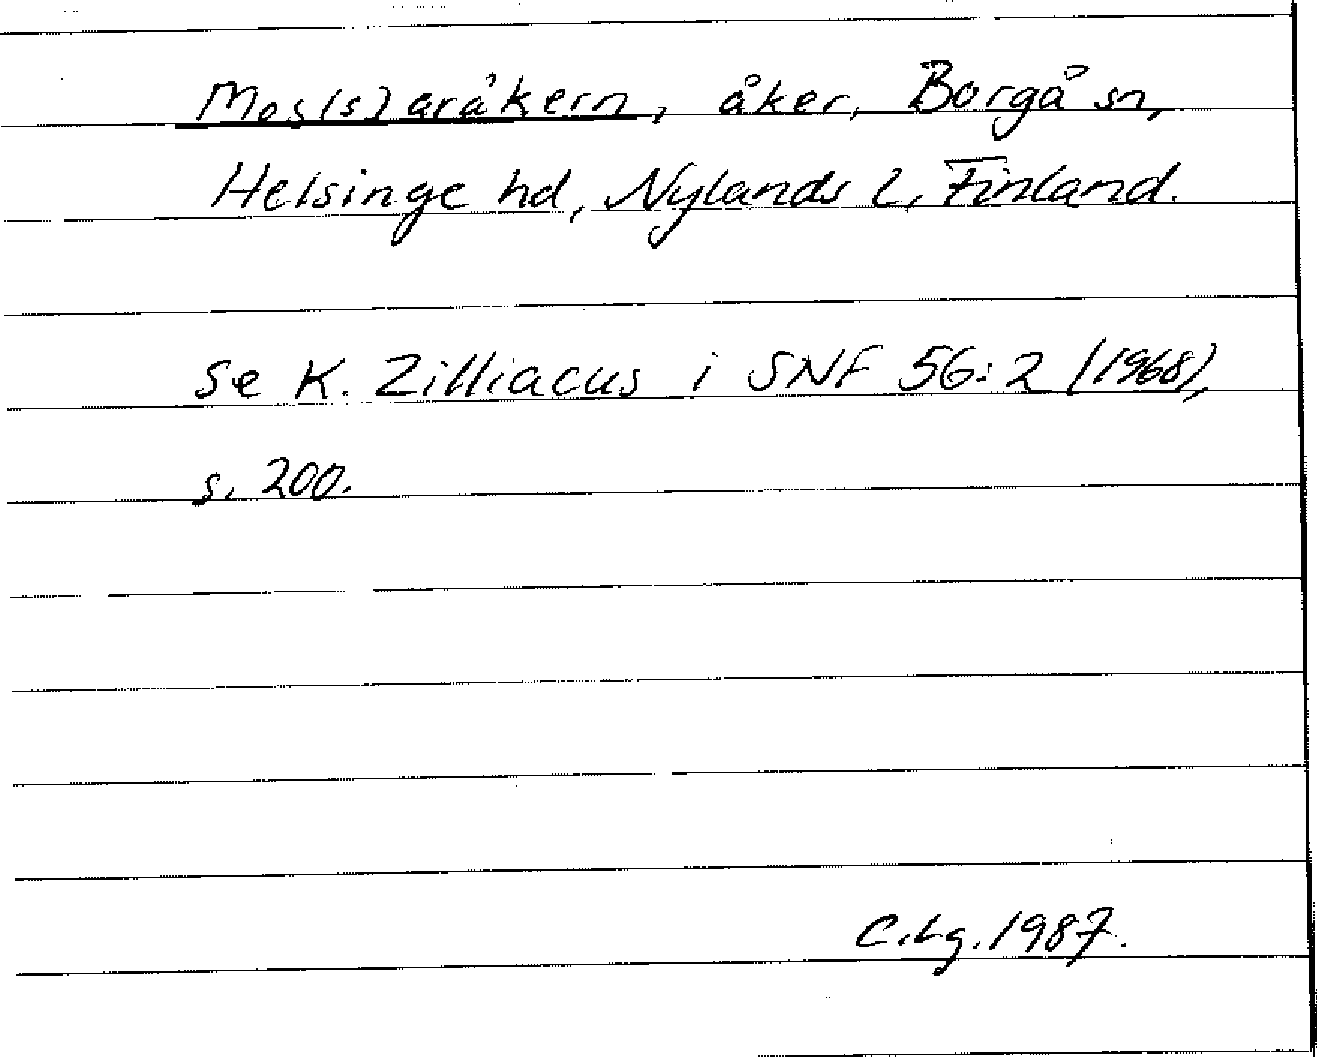 Mos(s)aråkern, åker, Borgå sn,
Helsinge hd, Nylands l, Finland.
Se K. Zilliacus i SNF 56:2 (1968),
s. 200.
C.Lg. 1987.